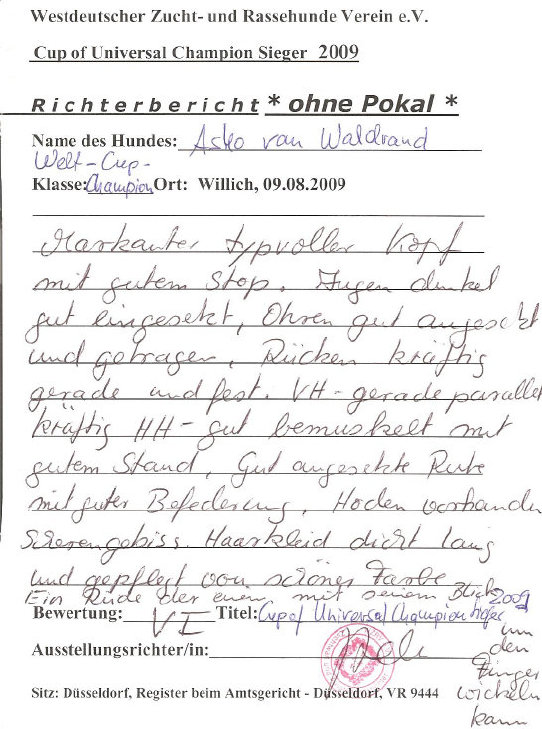 Westdeutscher Zucht- und Rassehunde Verein e.V.
Cup of Universal Champion Sieger 2009
Richterbericht * ohne Pokal *
Name des Hundes: Asko van Waldrand
Welt-Cup-
Klasse: Champion Ort: Willich, 09.08.2009
Markanter typvoller Kopf
mit gutem Stop. Augen dunkel
gut eingesetzt, Ohren gut angesetzt
und getragen, Rücken kräftig
gerade und fest. VH-gerade parallel
kräftig HH-gut bemuskelt mit
gutem Stand, Gut angesetzte Rute
mit guter Befederung, Hoden vorhanden
Scherengebiss. Haarkleid dicht lang
und gepflegt von schöner Farbe
Ein Rüde der einen mit seinem Blick
um
den
Finger
wickeln
kann
Bewertung: VI Titel: Cup of Universal Champion 2009
Ausstellungsrichter/in:
Sitz: Düsseldorf, Register beim Amtsgericht - Düsseldorf, VR 9444